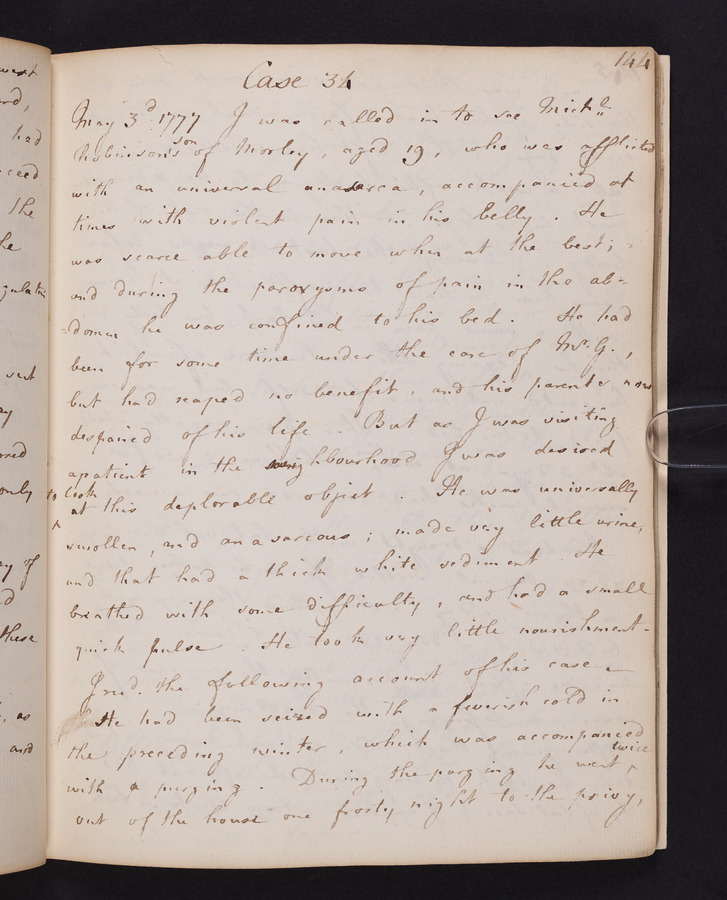 144
Case 34
May 3d. 1777 I was called in to see Michl.
Robinson's son of Morley, aged 19, who was afflicted
with an universal anasarca, accompanied at
times with violent pain in his belly. He
was scarce able to move when at the best;
and during the paroxysms of pain in the ab=
=domen he was confined to his bed. He had
been for some time under the care of Mr. G.,
but had reaped no benefit, and his parents now
despaired of his life. But as I was visiting
a patient in the neighbourhood I was desired
to look at this deplorable object. He was universally
swollen, and anasarcous; made very little urine,
and that had a thick white sediment. He
breathed with some difficulty, and had a small
quick pulse. He took very little nourishment.
I recd. the following account of his case.
He had been seized with a feverish cold in
the preceding winter, which was accompanied
with a purging. During the purging he went twice
out of the house one frosty night to the privy,
west
had
ceed
the
he
vent
only
of
these
, as
and